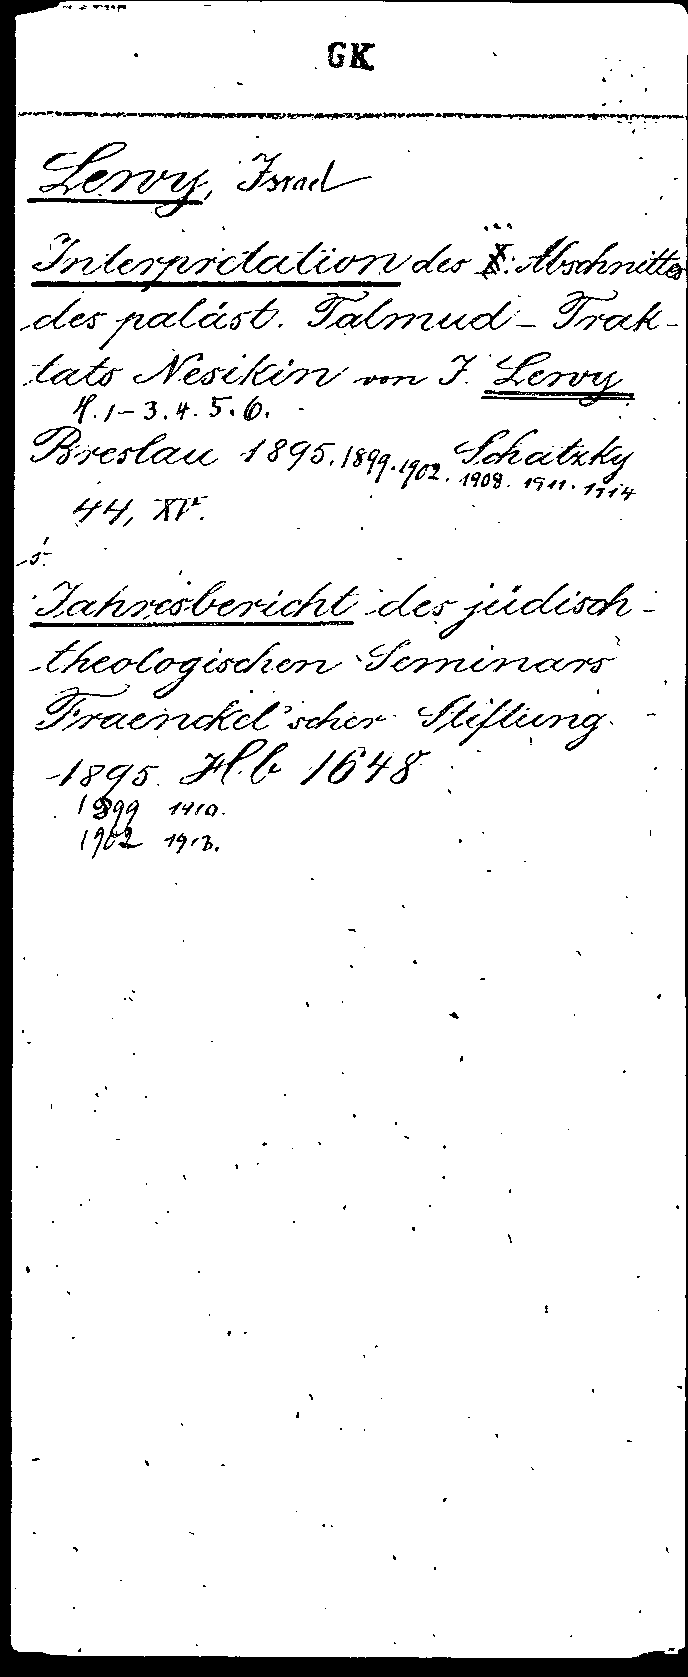 GK
Lewy, Israel
Interpretation des I. Abschnittes
des paläst. Talmud-Trak-
tats Nesikin von I. Lewy
H. 1-3. 4. 5. 6.
Breslau 1895. 1899. 1902. Schatzky
1908. 1911. 1914
44, XV.
s.
Jahresbericht des jüdisch-
theologischen Seminars
Fraenckel'scher Stiftung
1895. Hb 1648
1899 1910.
1902 1913.